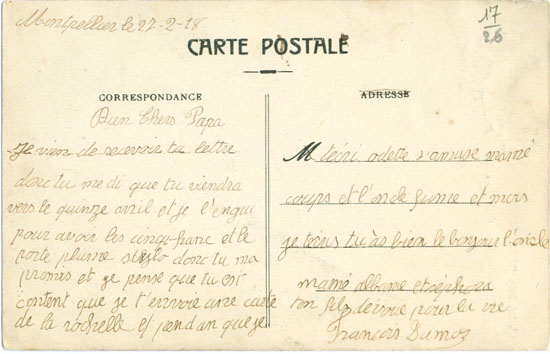 Montpellier le 27-2-18
17
26
CARTE POSTALE
CORRESPONDANCE
ADRESSE
Bien Chers Papa
Je vien de recevoir ta lettre
donc tu me di que tu viendra
vers le quinze avril et je
pour avoir les cinq franc et le
porte plume stylo donc tu ma
promis et je pense que tu est
content que je t'envoie une carte
de la rochelle et pendan que je
M odette s'amuse
coups et l'oncle et moi
je tu as bien le bonjour l'oncle
mamé albane et
ton fils pour la vie
François Dumoz